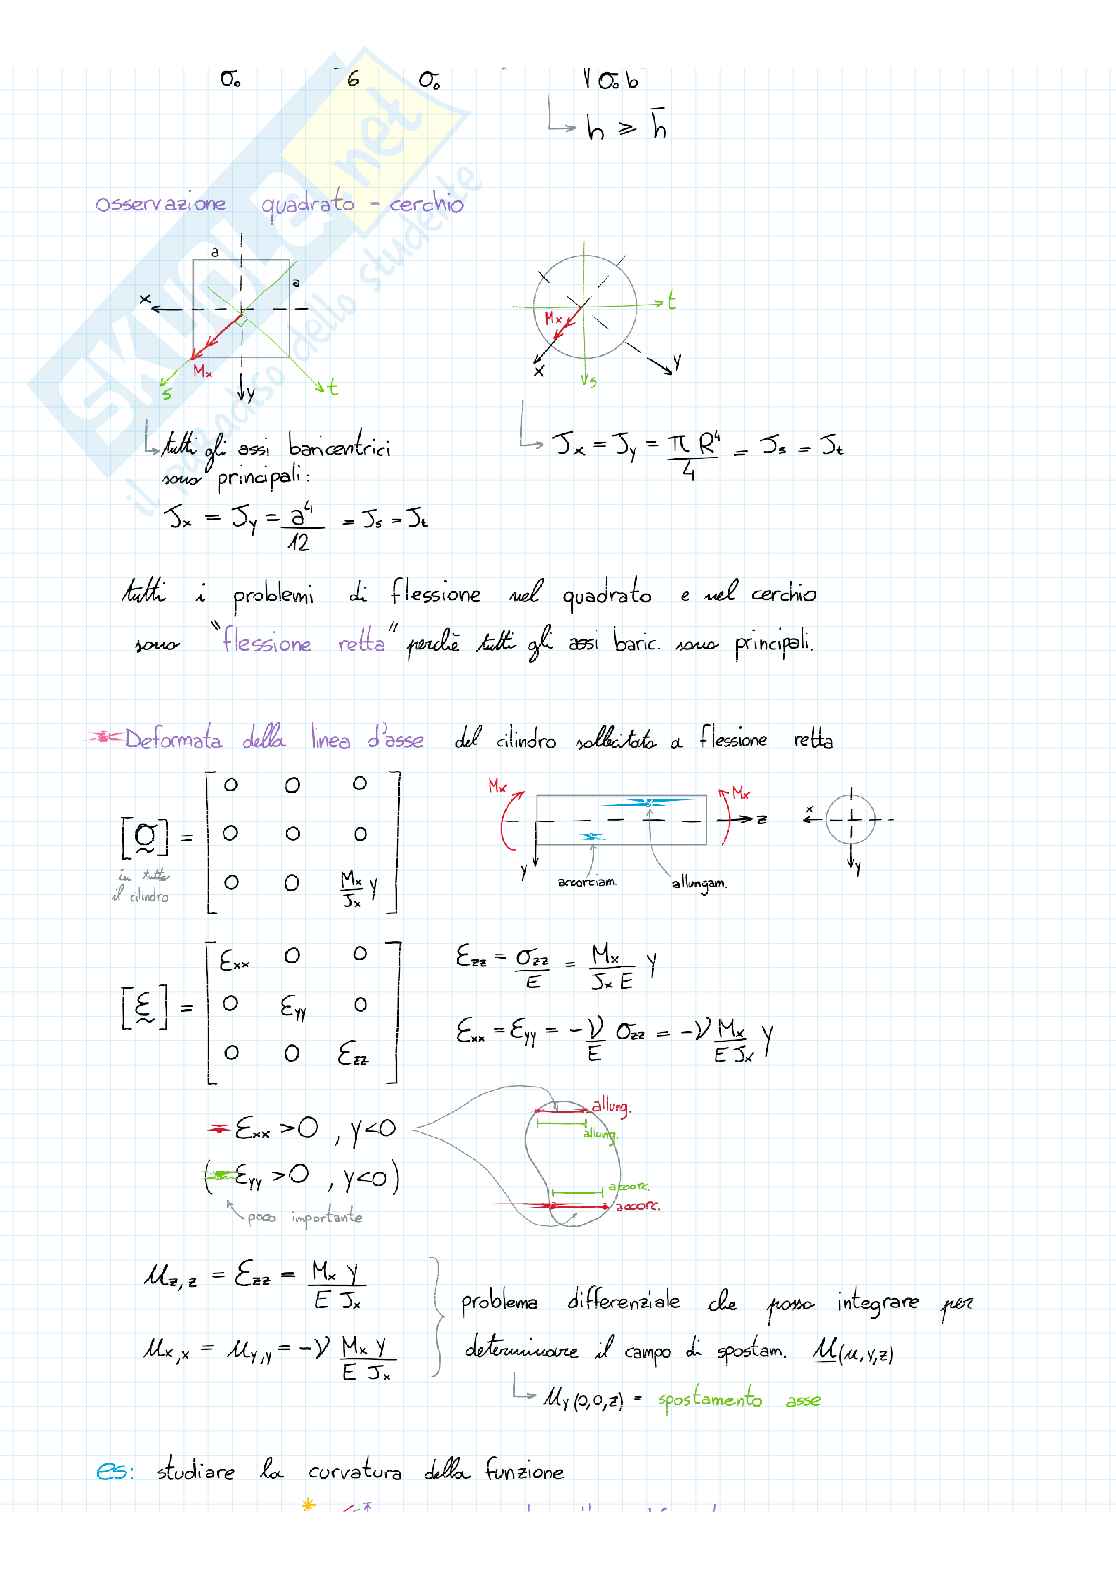 σ₀ 6 σ₀ √σ₀b
↳ h ⩾ h̄
osservazione quadrato - cerchio
a
a
x
Mx
s
y
t
Mx
t
x
s
y
↳ tutti gli assi baricentrici
sono principali:
Jx = Jy = a⁴/12 = Js = Jt
↳ Jx = Jy = π R⁴/4 = Js = Jt
tutti i problemi di flessione nel quadrato e nel cerchio
sono "flessione retta" perchè tutti gli assi baric. sono principali.
Deformata della linea d'asse del cilindro sollecitato a flessione retta
[σ] = [0 0 0
0 0 0
0 0 Mx/Jx y]
in tutto
il cilindro
Mx
Mx
z
y
accorciam.
allungam.
x
y
[ε] = [εxx 0 0
0 εyy 0
0 0 εzz]
εzz = σzz/E = Mx/(Jx E) y
εxx = εyy = -ν/E σzz = -ν Mx/(E Jx) y
εxx >0 , y<0
( εyy >0 , y<0)
poco importante
allung.
allung.
accorc.
accorc.
uz,z = εzz = Mx y/(E Jx)
ux,x = uy,y = -ν Mx y/(E Jx)
problema differenziale che posso integrare per
determinare il campo di spostam. u(x,y,z)
↳ uy(0,0,z) = spostamento asse
es: studiare la curvatura della funzione
SKUOLA.net
il paradiso dello studente